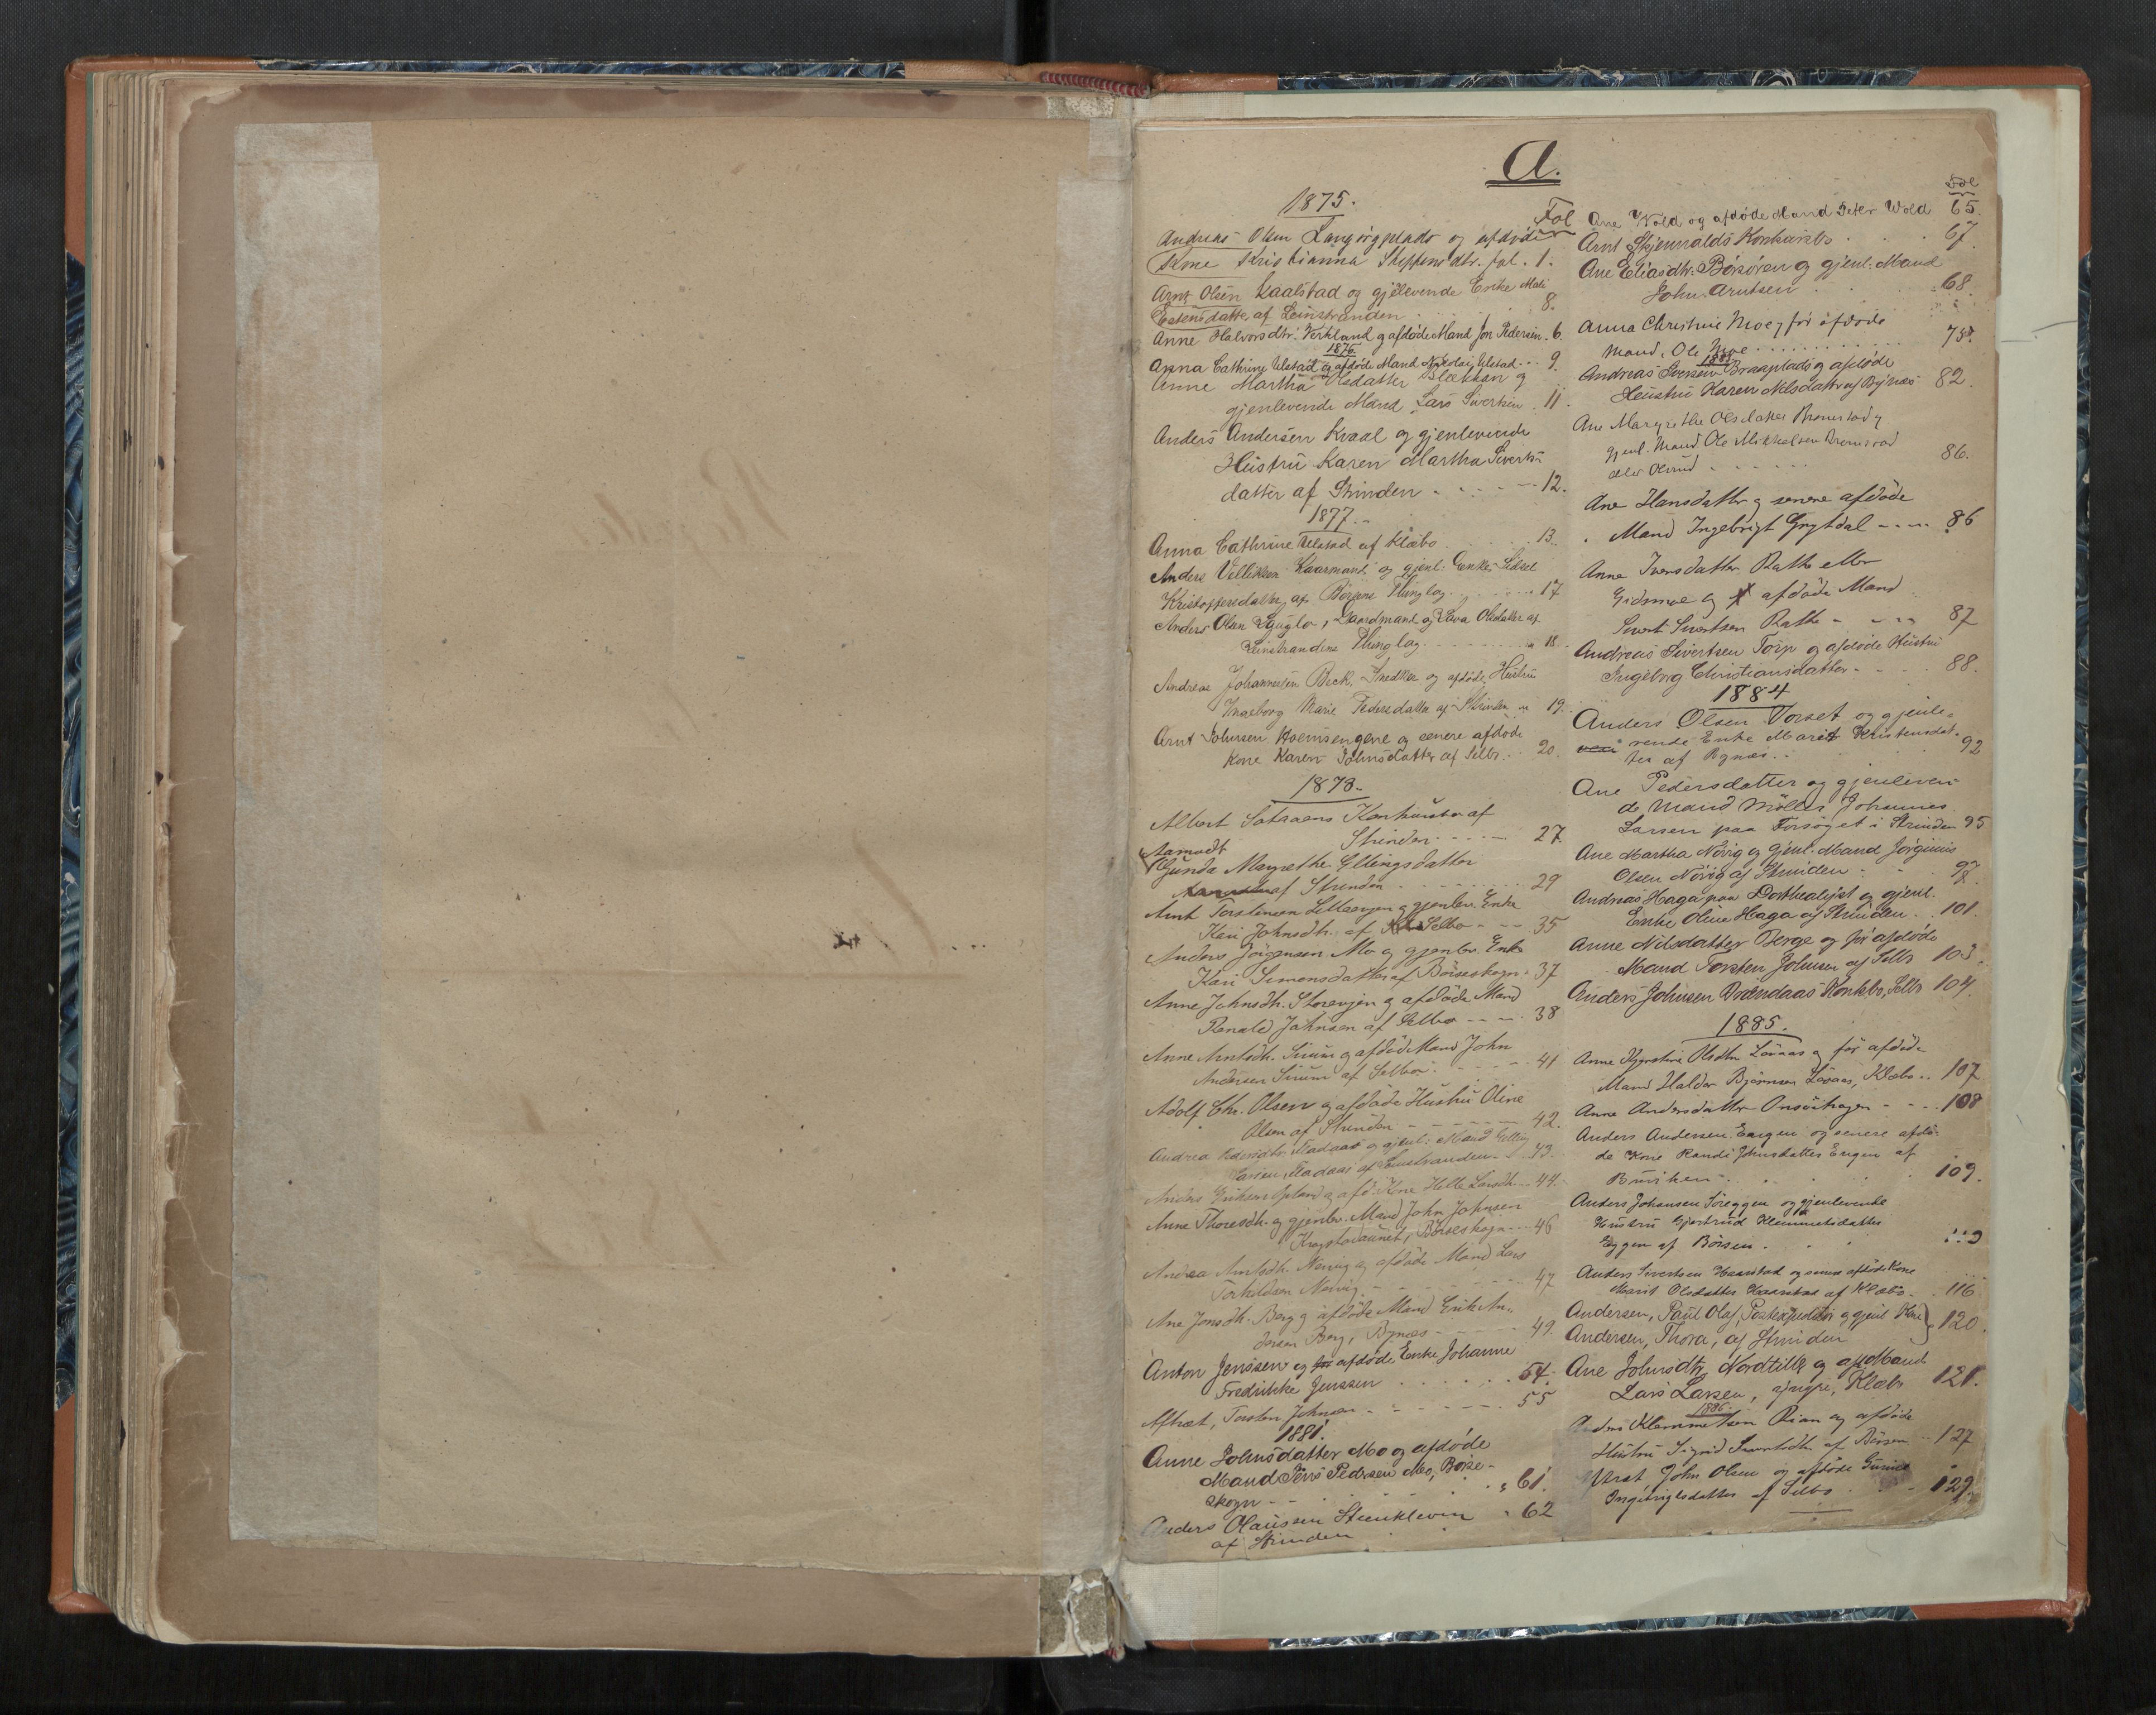 A.
1875.
Fol
Andreas Olsen Langørgplads og afdøde
Kone Kristianna Steffensdtr. fol. 1.
Arnt Olsen Kaalstad og gjelevende Enke Mali
Estensdatter af Leinstranden 8.
Anne Halvorsdtr. Verkland og afdøde Mand Jon Pedersen 6.
1876.
Anna Cathrine Ulstad og afdøde Mand Nikolai Ulstad 9.
Anne Martha Olsdatter Blækkan og
gjenlevende Mand Lars Sivertsen 11.
Anders Andersen Kvaal og gjenlevende
Hustru Karen Martha Siverts-
datter af Strinden 12.
1877.
Anna Cathrine Ulstad af Klæbo 13.
Anders Vellíksen Kaarmand og gjenl. Enke Sidsel
Kristoffersdatter af Börsens Thinglag 17
Anders Olsen Gaardmand og Olsdatter af
Leinstrandens Thinglag 18.
Andreas Johannesen Beck, Snedker og afdøde Hustru
Ingeborg Marie Pedersdatter af Strinden 19.
Arnt Johnsen Hoemsengene og senere afdøde
Kone Karen Johnsdatter af Selbo 20.
1878.
Albert Konkursbo af
Strinden 27.
Aamodt
Gunda Margrethe Ellingsdatter
af Strinden 29
Arnt Torstensen Litleengen og gjenlev. Enke
Kari Johnsdtr. af Selbo 35
Anders Jörgensen Mo og gjenlev. Enke
Kari Simonsdatter af Börseskogn 37
Anne Johnsdtr. Storengen og afdøde Mand
Renald Johnsen af Selbo 38
Anne Arntsdtr. Sirum og afdøde Mand John
Andersen Sirum af Selbo 41
Adolf Chr. Olsen og afdøde Hustru Oline
Olsen af Strinden 42.
Andrea Pedersdtr. Stadaas og gjenl. Mand Elling
Larsen Stadaas af Leinstranden 43.
Anders Eriksen Opland og afd. Kone Helle Larsdtr. 44.
Anne Thoresdtr. og gjenlev. Mand John Johnsen
Krogstadaunet, Börseskogn 46
Andrea Arntsdtr. Nervig og afdøde Mand Lars
Torkildsen Nervig 47
Ane Jonsdtr. Berg og afdøde Mand Erik An-
dersen Berg, Bynes 49.
Anton Jenssen og afdøde Enke Johanne
Fredrikke Jenssen 54.
Aftræt, Torsten Johnsen 55
1881.
Anne Johnsdatter Mo og afdøde
Mand Jens Pedersen Mo, Börse-
skogn 61.
Anders Olaussen Steenkleven 62
af Strinden
Fol
Ane Wold og afdøde Mand Peter Wold 65.
Arnt Skjenvalds Konkursbo 67.
Ane Eliasdtr. Börsören og gjenl. Mand
John Arntsen 68.
Anna Christine Moe og før afdøde
Mand, Ole Moe 75.
Andreas Svensen Braaplads og afdøde
Hustru Karen Nilsdatter af Bynes 82.
Ane Margrethe Olsdatter Bromstad og
gjenl. Mand Ole Mikkelsen Bromstad
eller Olrud 86.
Ane Hansdatter og senere afdøde
Mand Ingebrigt Grytdal 86
Anne Iversdatter Rathe eller
Eidsmoe og afdøde Mand
Sivert Sivertsen Rathe 87
Andreas Sivertsen Torp og afdøde Hustru
Ingeborg Christiansdatter 88.
1884
Anders Olsen Vorset og gjenle-
vende Enke Marit Kristensdat-
ter af Bynes 92
Ane Pedersdatter og gjenleven-
de Mand Möller Johannes
Larsen paa Forsøget i Strinden 95
Ane Martha Növig og gjenl. Mand Jørginus
Olsen Növig af Strinden 97.
Andreas Haga paa Dorthealyst og gjenl.
Enke Oline Haga af Strinden 101.
Anne Nilsdatter Berge og før afdøde
Mand Torsten Johnsen af Selbo 103.
Anders Johnsen Brændaas Konkbo, Selbo 104.
1885.
Anne Kjerstine Olsdtr Løvaas og før afdøde
Mand Haldor Bjørnsen Løvaas, Klæbo 107
Anne Andersdatter Onsöihagen 108
Anders Andersen Engen og senere afdö-
de Kone Randi Johnsdatter Engen af
Buviken 109.
Anders Johansen Soreggen og gjenlevende
Hustru Gjertrud Klemmetsdatter
Eggen af Börsen
Anders Sivertsen Haarstad og senere afdöde Kone
Marit Olsdatter Haarstad af Klæbo 116
Andersen, Paul Olaf, Postexpeditör og gjenl. Kone
Andersen, Thora, af Strinden } 120.
Ane Johnsdtr. Nordtiller og afd. Mand
Lars Larsen, yngre, Klæbo 121.
1886.
Anders Klemmetsen Rian og afdøde
Hustru Sigrid Sivertsdtr. af Börsen 127
Aftret John Olsen og afdøde Gurine
Ingebrigtsdatter af Selbo 129.